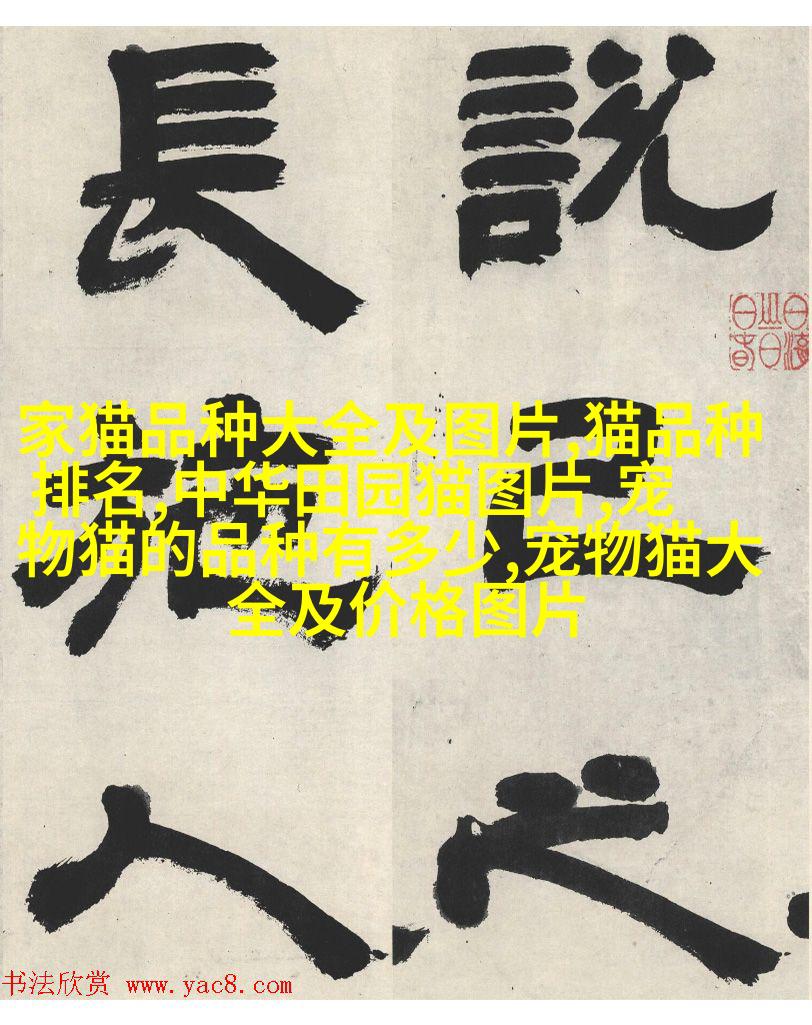 說己之
長施人
家猫品种大全及图片,猫品种
排名,中华田园猫图片,宠
物猫的品种有多少,宠物猫大
全及价格图片
书法欣赏 www.yac8.com